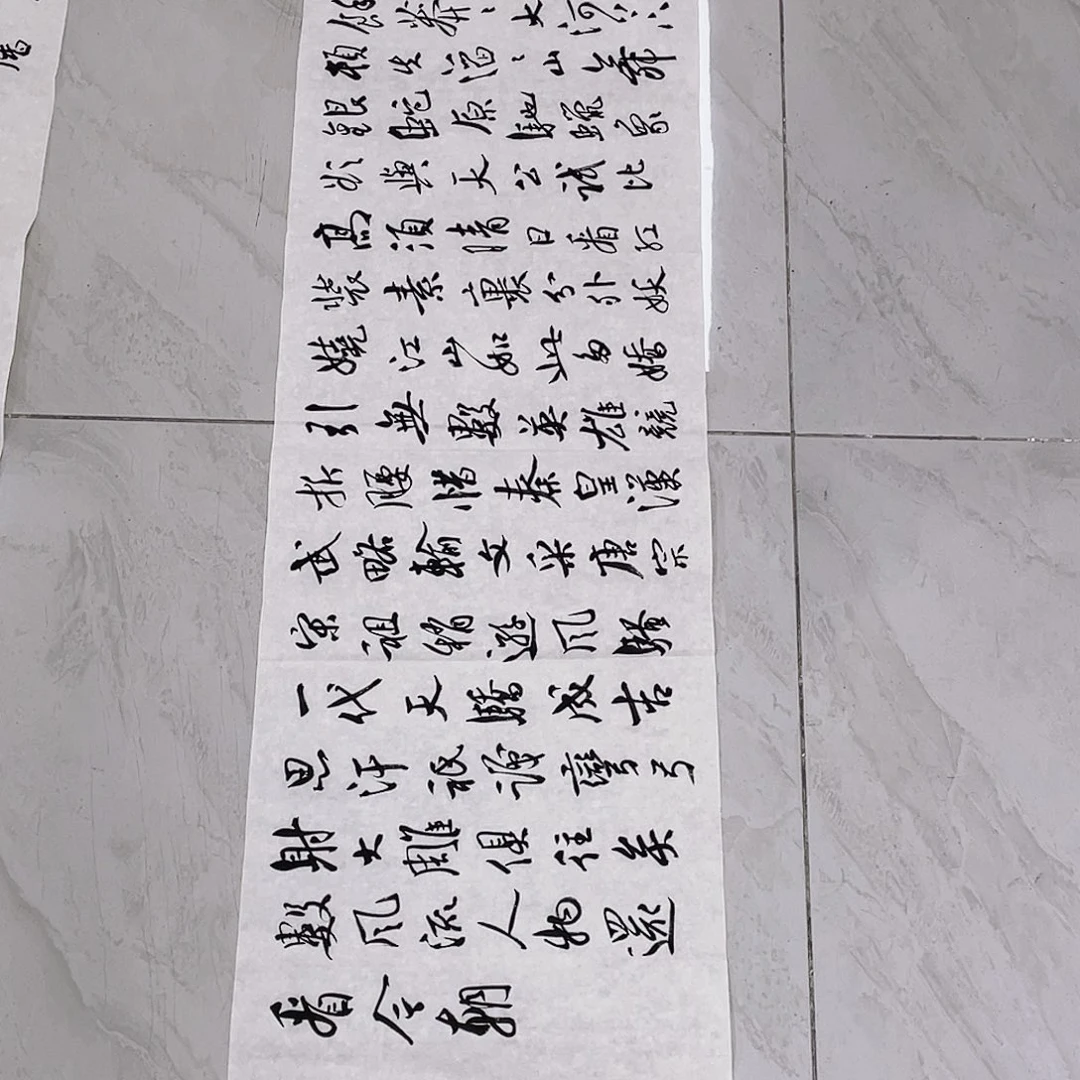 莽〻大河
頓失滔〻山舞
銀蛇原馳蠟象
欲與天公試比
高須晴日看紅
裝素裹分外妖
嬈江山如此多嬌
引無數英雄競
折腰惜秦皇漢
武略輸文采唐宗
宋祖稍遜風騷
一代天驕成吉
思汗祗識彎弓
射大雕俱往矣
數風流人物還
看今朝